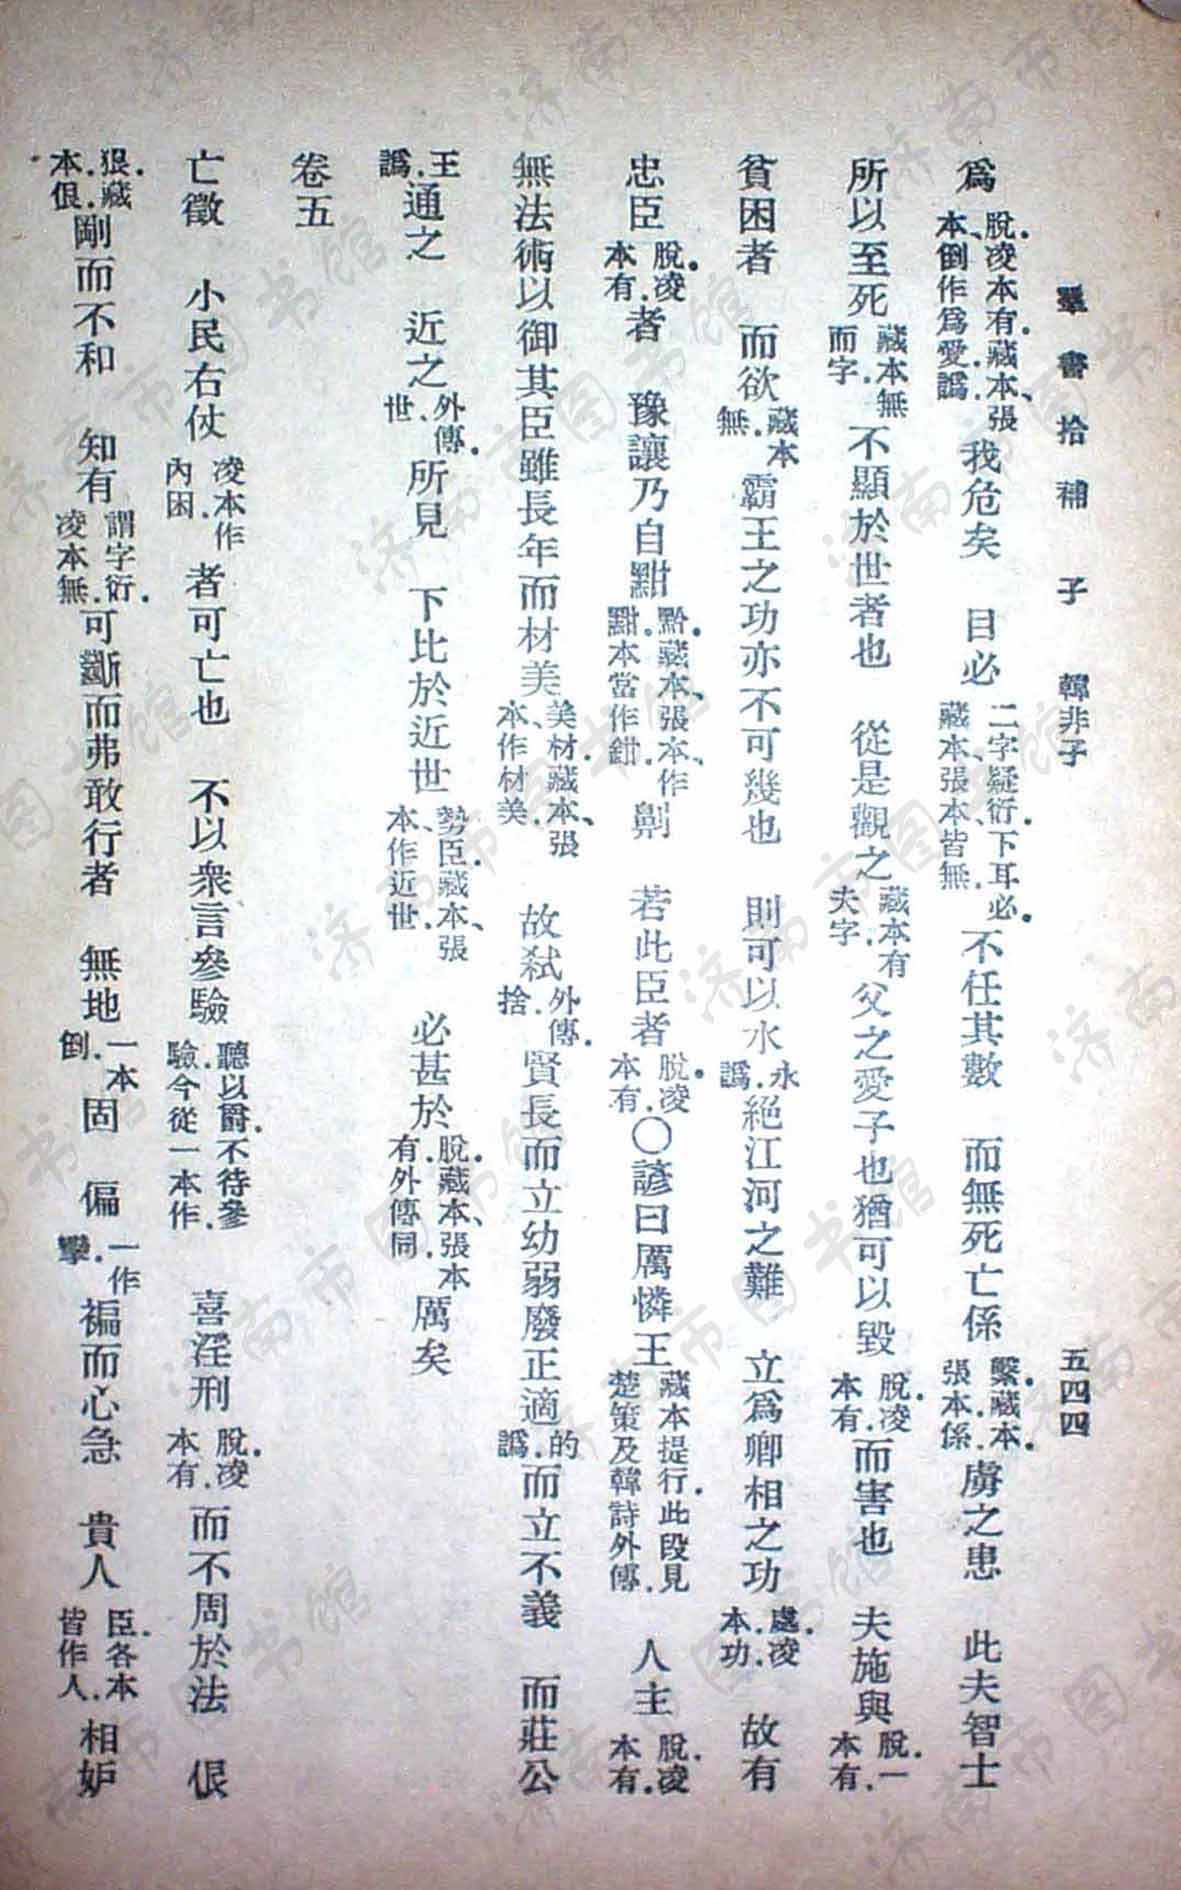 羣書拾補 子 韓非子 五四四
爲脫.凌本有.藏本、張本、倒作爲愛.譌.我危矣 目必二字疑衍.下耳必.藏本、張本皆無.不任其數 而無死亡係繫.藏本.張本.係.虜之患 此夫智士
所以至死藏本無而字.不顯於世者也 從是觀之藏本有夫字.父之愛子也猶可以毀脫.凌本有.而害也 夫施與脫.一本有.
貧困者 而欲藏本無.霸王之功亦不可幾也 則可以水永譌.絕江河之難 立爲卿相之功處.凌本.功.故有
忠臣脫.凌本有.者 豫讓乃自黚黔.藏本、張本、作黚.本當作鉗.劓 若此臣者脫.凌本有.〇諺曰厲憐王藏本提行.此段見楚策及韓詩外傳.人主脫.凌本有.
無法術以御其臣雖長年而材美美材.藏本、張本、作材美.故弒外傳.捨.賢長而立幼弱廢正適的譌.而立不義 而莊公
王譌.通之 近之外傳.世.所見 下比於近世勢臣.藏本、張本、作近世.必甚於脫.藏本、張本有.外傳同.厲矣
卷五
亡徵 小民右仗凌本作內困.者可亡也 不以衆言參驗聽以爵.不待參驗.今從一本作.喜淫刑脫.凌本有.而不周於法 很
狠.藏本.很.剛而不和 知有謂字衍.凌本無.可斷而弗敢行者 無地一本倒.固 偏一作㩻.褊而心急 貴人臣.各本皆作人.相妒